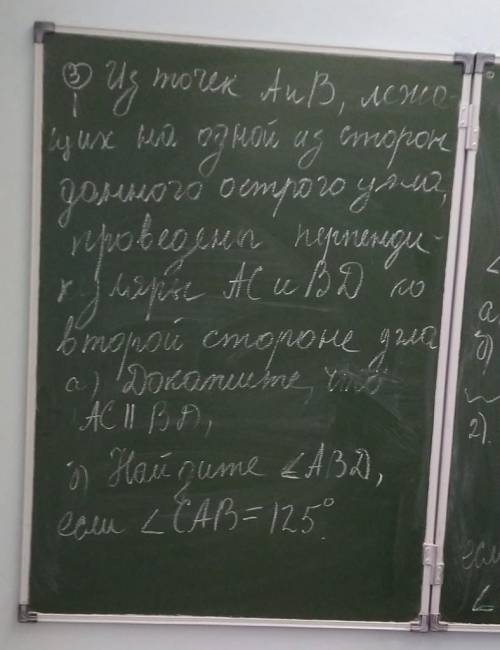 ③ Из точек А и В, лежа-
щих на одной из сторон
данного острого угла,
проведены перпенди-
куляры АС и ВD ко
второй стороне угла
а) Докажите, что
АС || ВD,
б) Найдите ∠АВD,
если ∠САВ=125°.
∠
а
б)
2)
если
∠